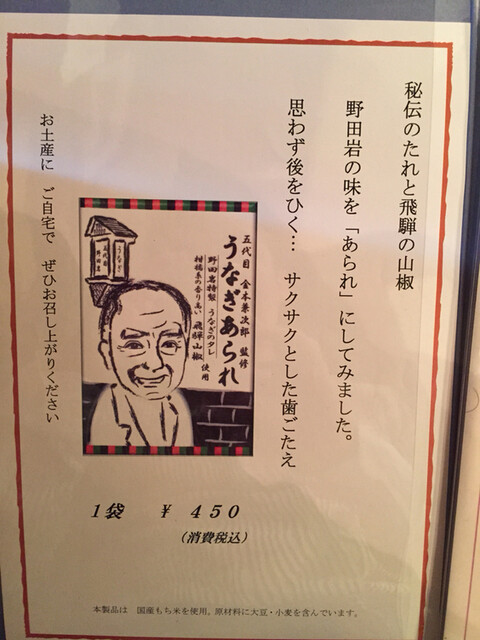 秘伝のたれと飛騨の山椒
野田岩の味を「あられ」にしてみました。
思わず後をひく… サクサクとした歯ごたえ
五代目 金本兼次郎 監修
うなぎあられ
野田岩特製 うなぎのタレ
柑橘系の香り高い 飛騨山椒
使用
うなぎ
五代目
野田岩
お土産に ご自宅で ぜひお召し上がりください
1袋 ¥ 450
(消費税込)
本製品は 国産もち米を使用。原材料に大豆・小麦を含んでいます。